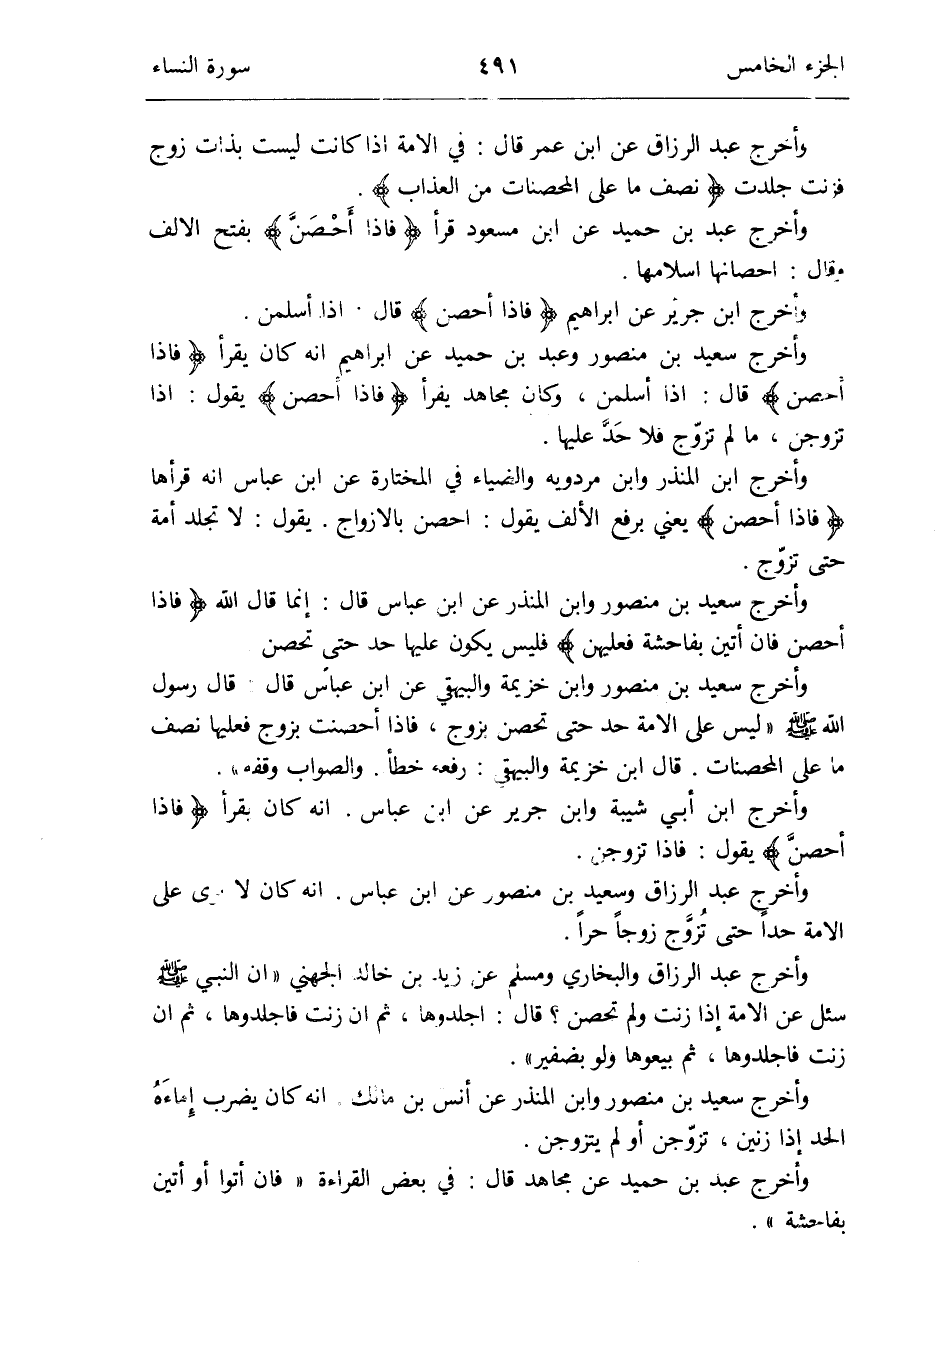 الجزء الخامس ٤٩١ سورة النساء
وأخرج عبد الرزاق عن ابن عمر قال : في الامة اذا كانت ليست بذات زوج
فزنت جلدت ﴿ نصف ما على المحصنات من العذاب ﴾ .
وأخرج عبد بن حميد عن ابن مسعود قرأ ﴿ فاذا أَحْصَنَّ ﴾ بفتح الالف
وقال : احصانها اسلامها .
وأخرج ابن جرير عن ابراهيم ﴿ فاذا أحصن ﴾ قال · اذا أسلمن .
وأخرج سعيد بن منصور وعبد بن حميد عن ابراهيم انه كان يقرأ ﴿ فاذا
أحصن ﴾ قال : اذا أسلمن ، وكان مجاهد يقرأ ﴿ فاذا أحصن ﴾ يقول : اذا
تزوجن ، ما لم تزوّج فلا حَدَّ عليها .
وأخرج ابن المنذر وابن مردويه والضياء في المختارة عن ابن عباس انه قرأها
﴿ فاذا أحصن ﴾ يعني برفع الألف يقول : احصن بالازواج . يقول : لا تجلد أمة
حتى تزوّج .
وأخرج سعيد بن منصور وابن المنذر عن ابن عباس قال : إنما قال الله ﴿ فاذا
أحصن فان أتين بفاحشة فعليهن ﴾ فليس يكون عليها حد حتى تحصن
وأخرج سعيد بن منصور وابن خزيمة والبيهقي عن ابن عباس قال قال رسول
الله ﷺ « ليس على الامة حد حتى تحصن بزوج ، فاذا أحصنت بزوج فعليها نصف
ما على المحصنات . قال ابن خزيمة والبيهقي : رفعه خطأ . والصواب وقفه» .
وأخرج ابن أبي شيبة وابن جرير عن ابن عباس . انه كان يقرأ ﴿ فاذا
أحصنَّ ﴾ يقول : فاذا تزوجن .
وأخرج عبد الرزاق وسعيد بن منصور عن ابن عباس . انه كان لا يرى على
الامة حداً حتى تُزَوَّج زوجاً حراً .
وأخرج عبد الرزاق والبخاري ومسلم عن زيد بن خالد الجهني « ان النبي ﷺ
سئل عن الامة إذا زنت ولم تحصن ؟ قال : اجلدوها ، ثم ان زنت فاجلدوها ، ثم ان
زنت فاجلدوها ، ثم بيعوها ولو بضفير» .
وأخرج سعيد بن منصور وابن المنذر عن أنس بن مالك . انه كان يضرب إِماءَهُ
الحد إذا زنين ، تزوّجن أو لم يتزوجن .
وأخرج عبد بن حميد عن مجاهد قال : في بعض القراءة « فان أتوا أو أتين
بفاحشة » .